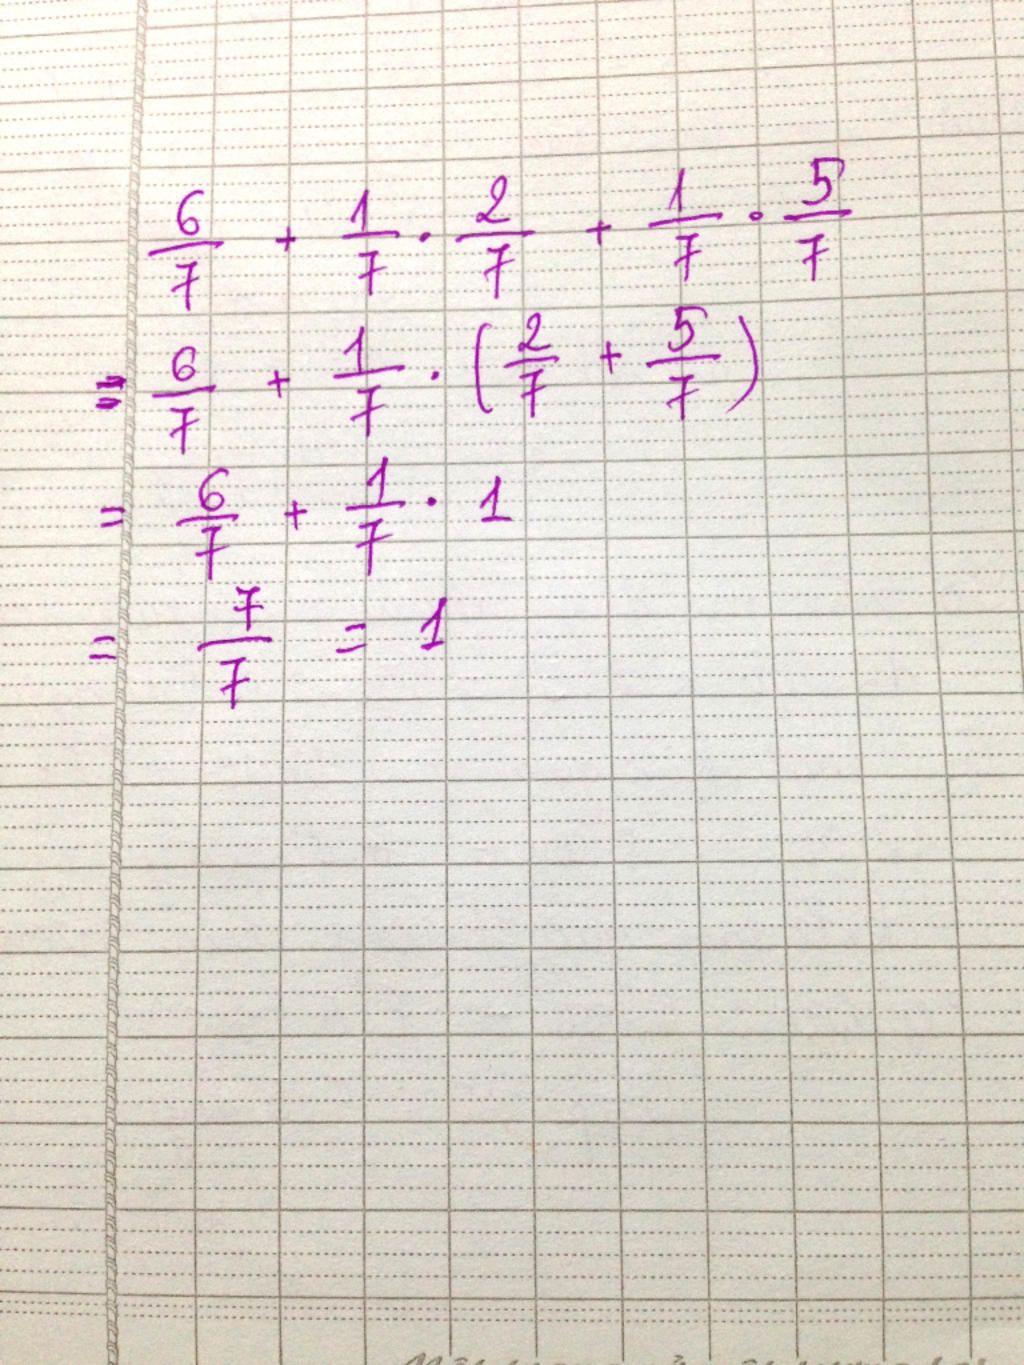 6/7 + 1/7 . 2/7 + 1/7 . 5/7
= 6/7 + 1/7 . (2/7 + 5/7)
= 6/7 + 1/7 . 1
= 7/7 = 1